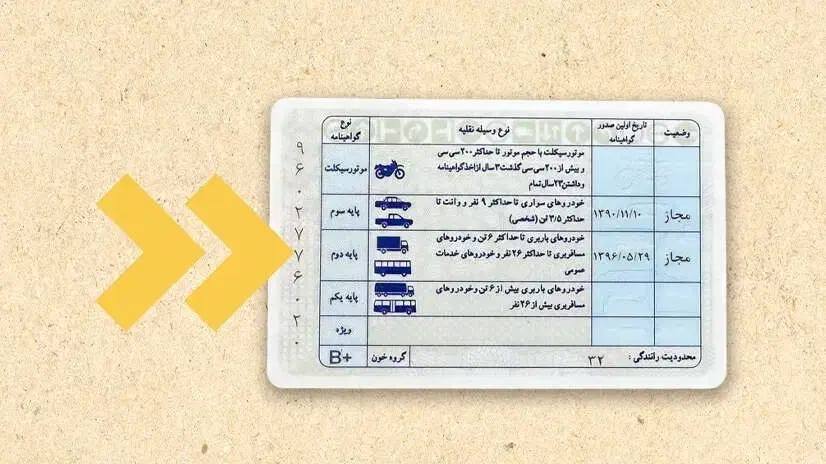 وضعیت
تاریخ اولین صدور گواهینامه
نوع وسیله نقلیه
نوع گواهینامه
موتورسیکلت با حجم موتور تا حداکثر ۲۰۰ سی سی
و بیش از ۲۰۰ سی سی گذشت ۳ سال از اخذ گواهینامه
و داشتن ۲۳ سال تمام
موتورسیکلت
مجاز
۱۳۹۰/۱۱/۱۰
خودروهای سواری تا حداکثر ۹ نفر و وانت تا
حداکثر ۳/۵ تن (شخصی)
پایه سوم
مجاز
۱۳۹۶/۰۵/۲۹
خودروهای باربری تا حداکثر ۶ تن و خودروهای
مسافربری تا حداکثر ۲۶ نفر و خودروهای خدمات
عمومی
پایه دوم
خودروهای باربری بیش از ۶ تن و خودروهای
مسافربری بیش از ۲۶ نفر
پایه یکم
ویژه
محدودیت رانندگی : ۳۲
گروه خون
B+
۹۶۰۲۷۷۶۰۲۰